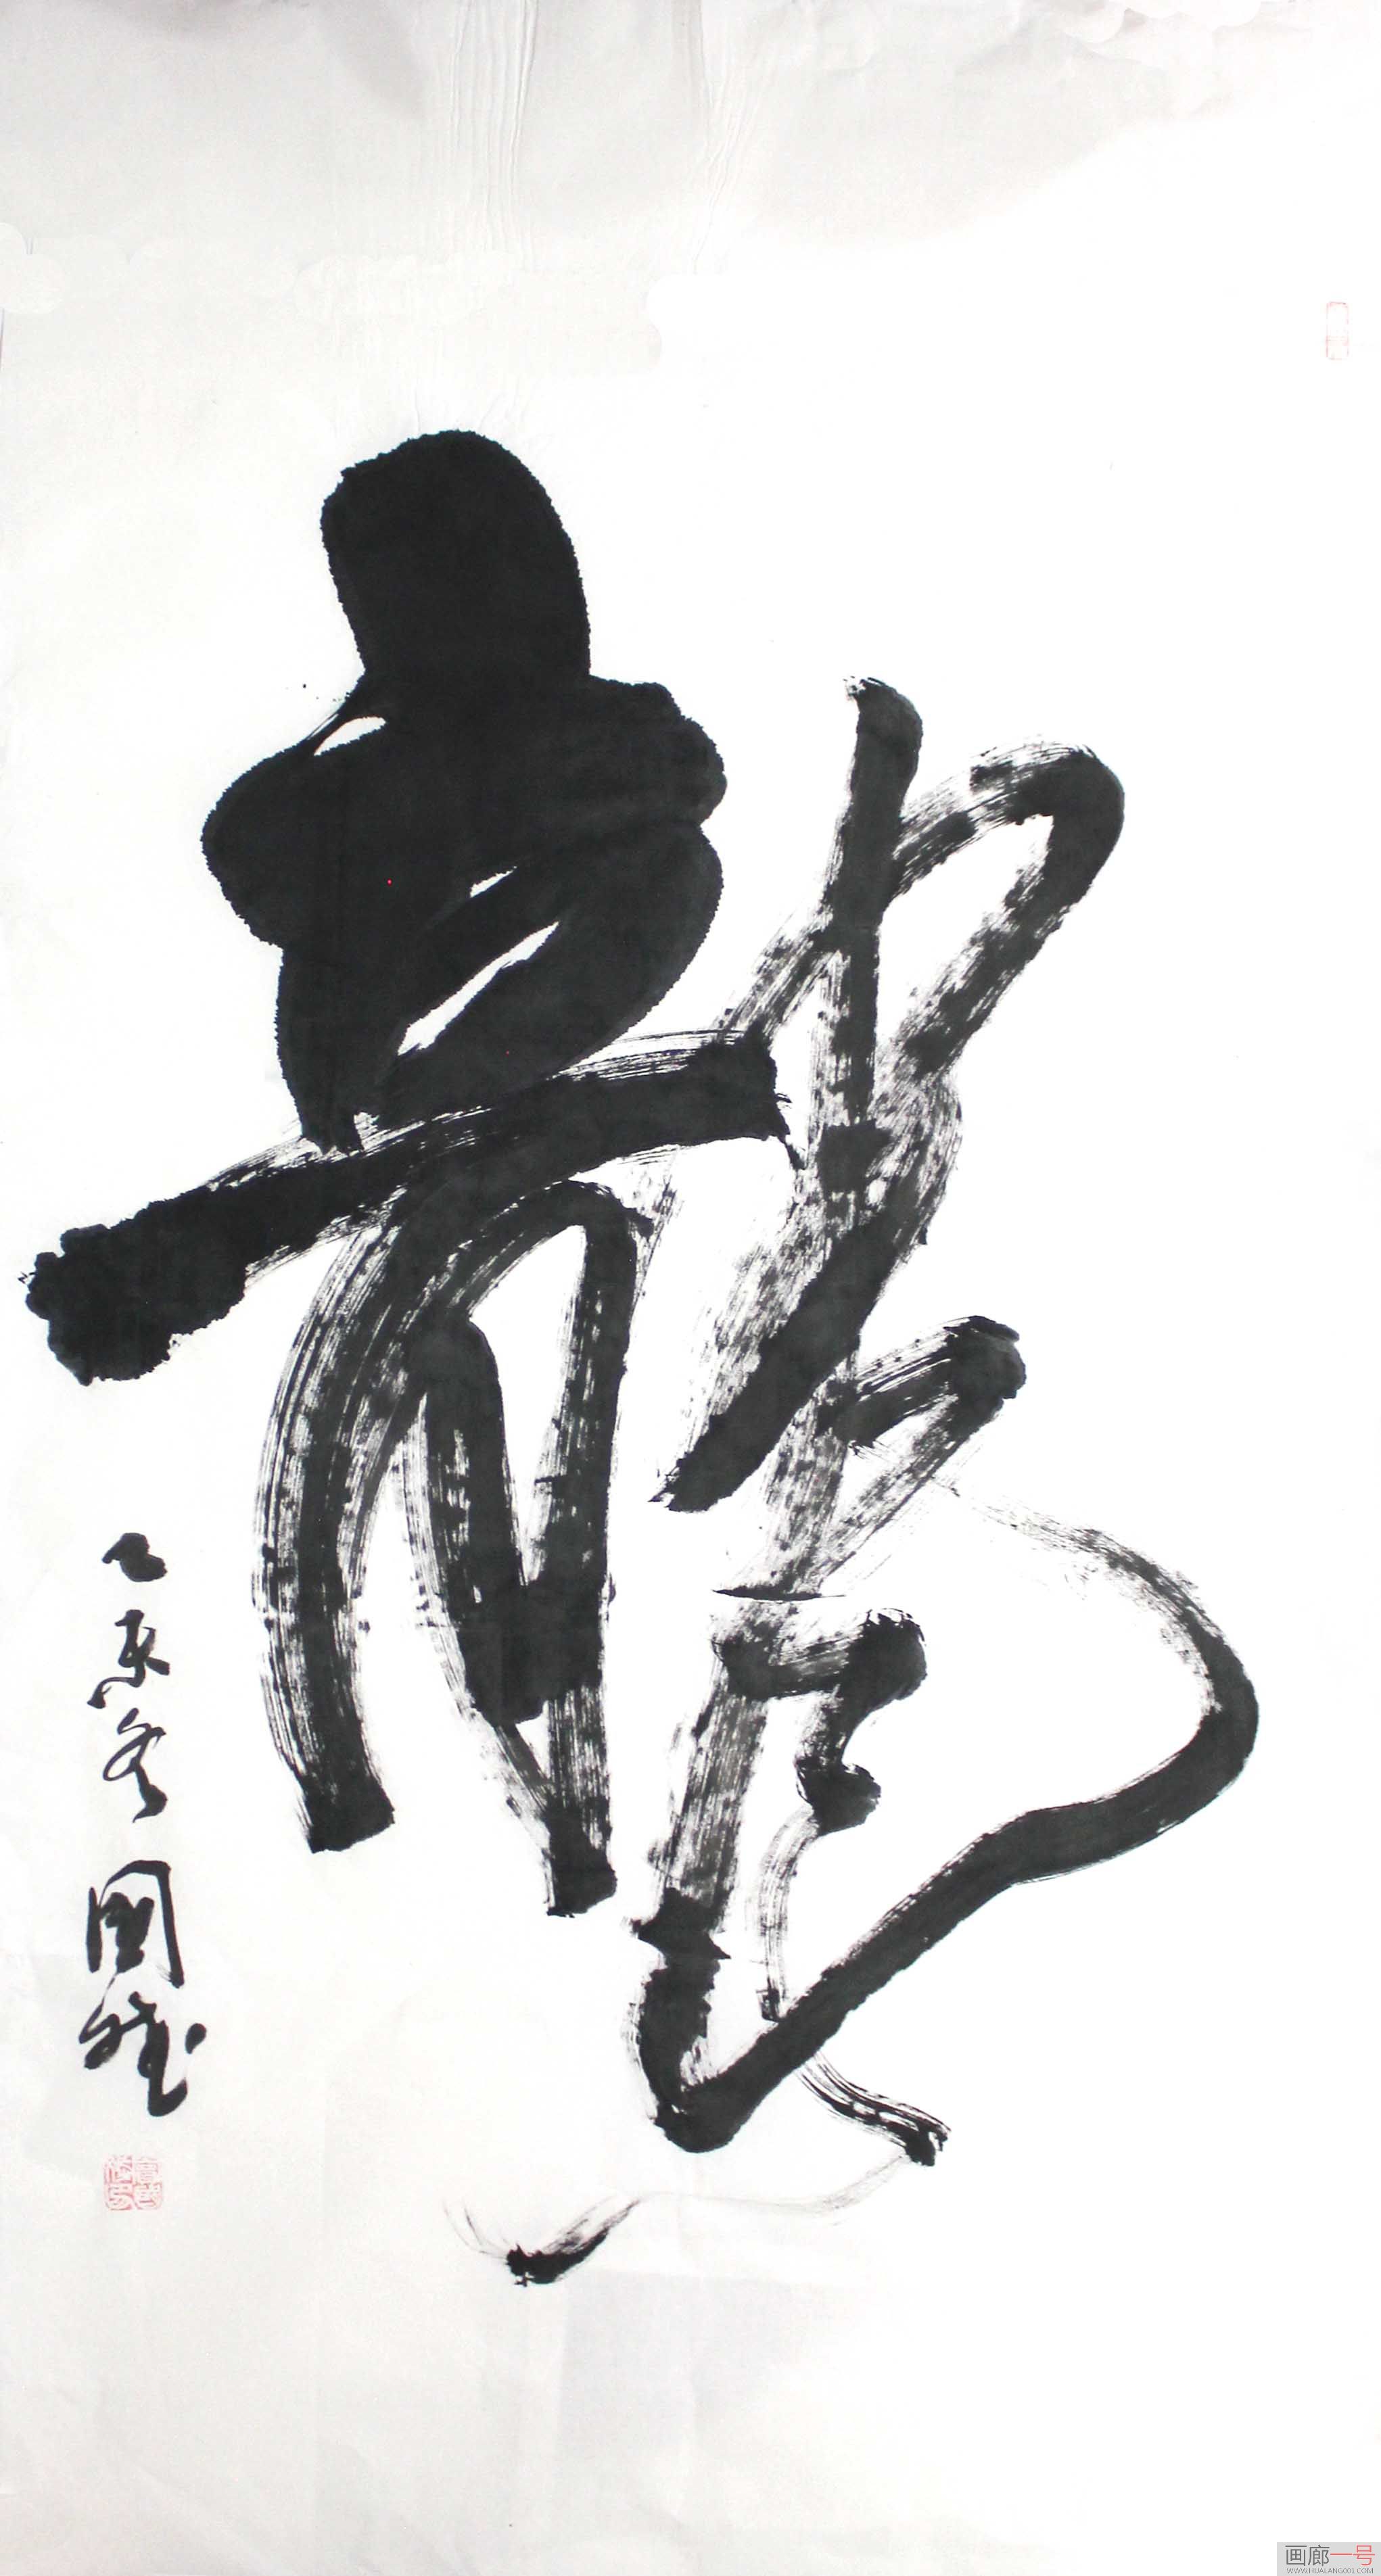 龍
乙未冬國斌
画廊一号
WWW.HUALANG001.COM